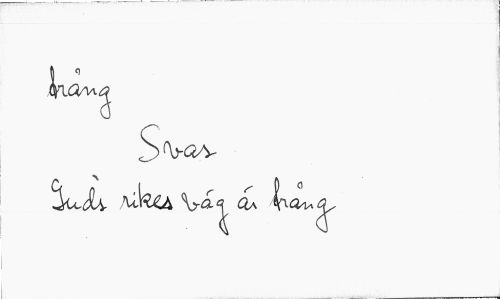 trång
Svas
Guds rikes väg är trång